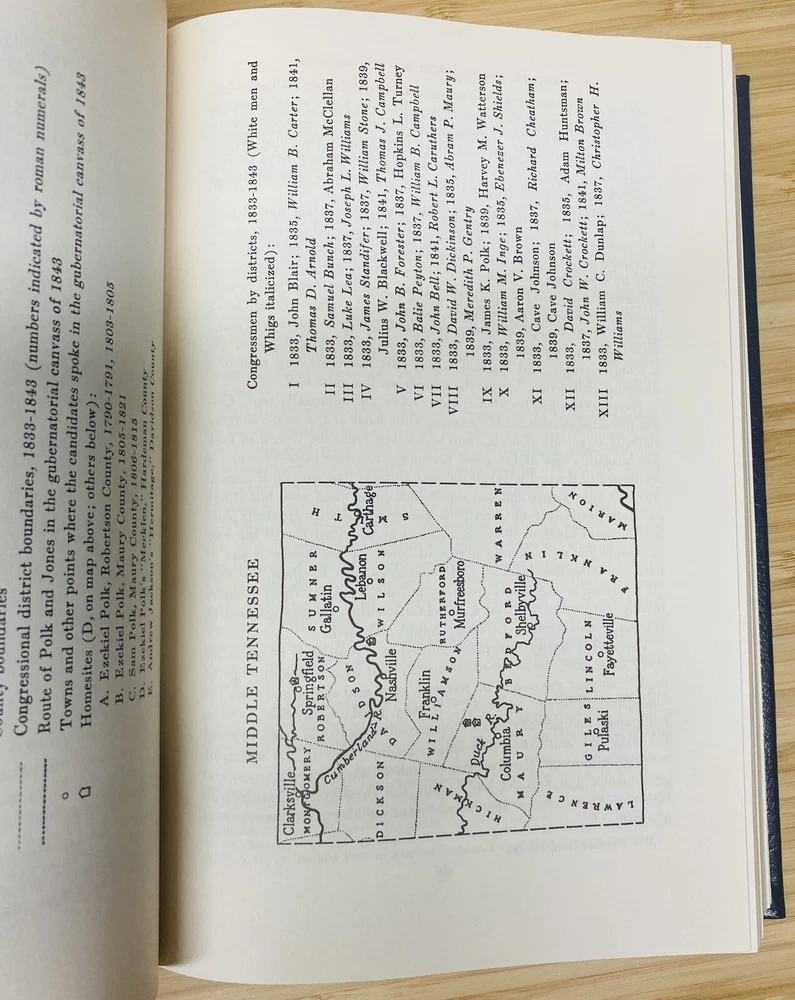 County boundaries
Congressional district boundaries, 1833-1843 (numbers indicated by roman numerals)
Route of Polk and Jones in the gubernatorial canvass of 1843
Towns and other points where the candidates spoke in the gubernatorial canvass of 1843
Homesites (D, on map above; others below):
A. Ezekiel Polk, Robertson County, 1790-1791, 1803-1805
B. Ezekiel Polk, Maury County, 1805-1821
C. Sam Polk, Maury County, 1806-1815
D. Ezekiel Polk's "Mecklen," Hardeman County
E. Andrew Jackson's "Hermitage," Davidson County
MIDDLE TENNESSEE
Clarksville
MONTGOMERY
Springfield
ROBERTSON
SUMNER
Gallatin
SMITH
Carthage
Cumberland R.
DICKSON
DAVIDSON
Nashville
Lebanon
WILSON
Franklin
WILLIAMSON
RUTHERFORD
Murfreesboro
WARREN
HICKMAN
Duck
Columbia
MAURY
BEDFORD
Shelbyville
FRANKLIN
MARION
LAWRENCE
GILES
Pulaski
LINCOLN
Fayetteville
Congressmen by districts, 1833-1843 (White men and
Whigs italicized):
I 1833, John Blair; 1835, William B. Carter; 1841,
Thomas D. Arnold
II 1833, Samuel Bunch; 1837, Abraham McClellan
III 1833, Luke Lea; 1837, Joseph L. Williams
IV 1833, James Standifer; 1837, William Stone; 1839,
Julius W. Blackwell; 1841, Thomas J. Campbell
V 1833, John B. Forester; 1837, Hopkins L. Turney
VI 1833, Balie Peyton; 1837, William B. Campbell
VII 1833, John Bell; 1841, Robert L. Caruthers
VIII 1833, David W. Dickinson; 1835, Abram P. Maury;
1839, Meredith P. Gentry
IX 1833, James K. Polk; 1839, Harvey M. Watterson
X 1833, William M. Inge; 1835, Ebenezer J. Shields;
1839, Aaron V. Brown
XI 1833, Cave Johnson; 1837, Richard Cheatham;
1839, Cave Johnson
XII 1833, David Crockett; 1835, Adam Huntsman;
1837, John W. Crockett; 1841, Milton Brown
XIII 1833, William C. Dunlap; 1837, Christopher H.
Williams